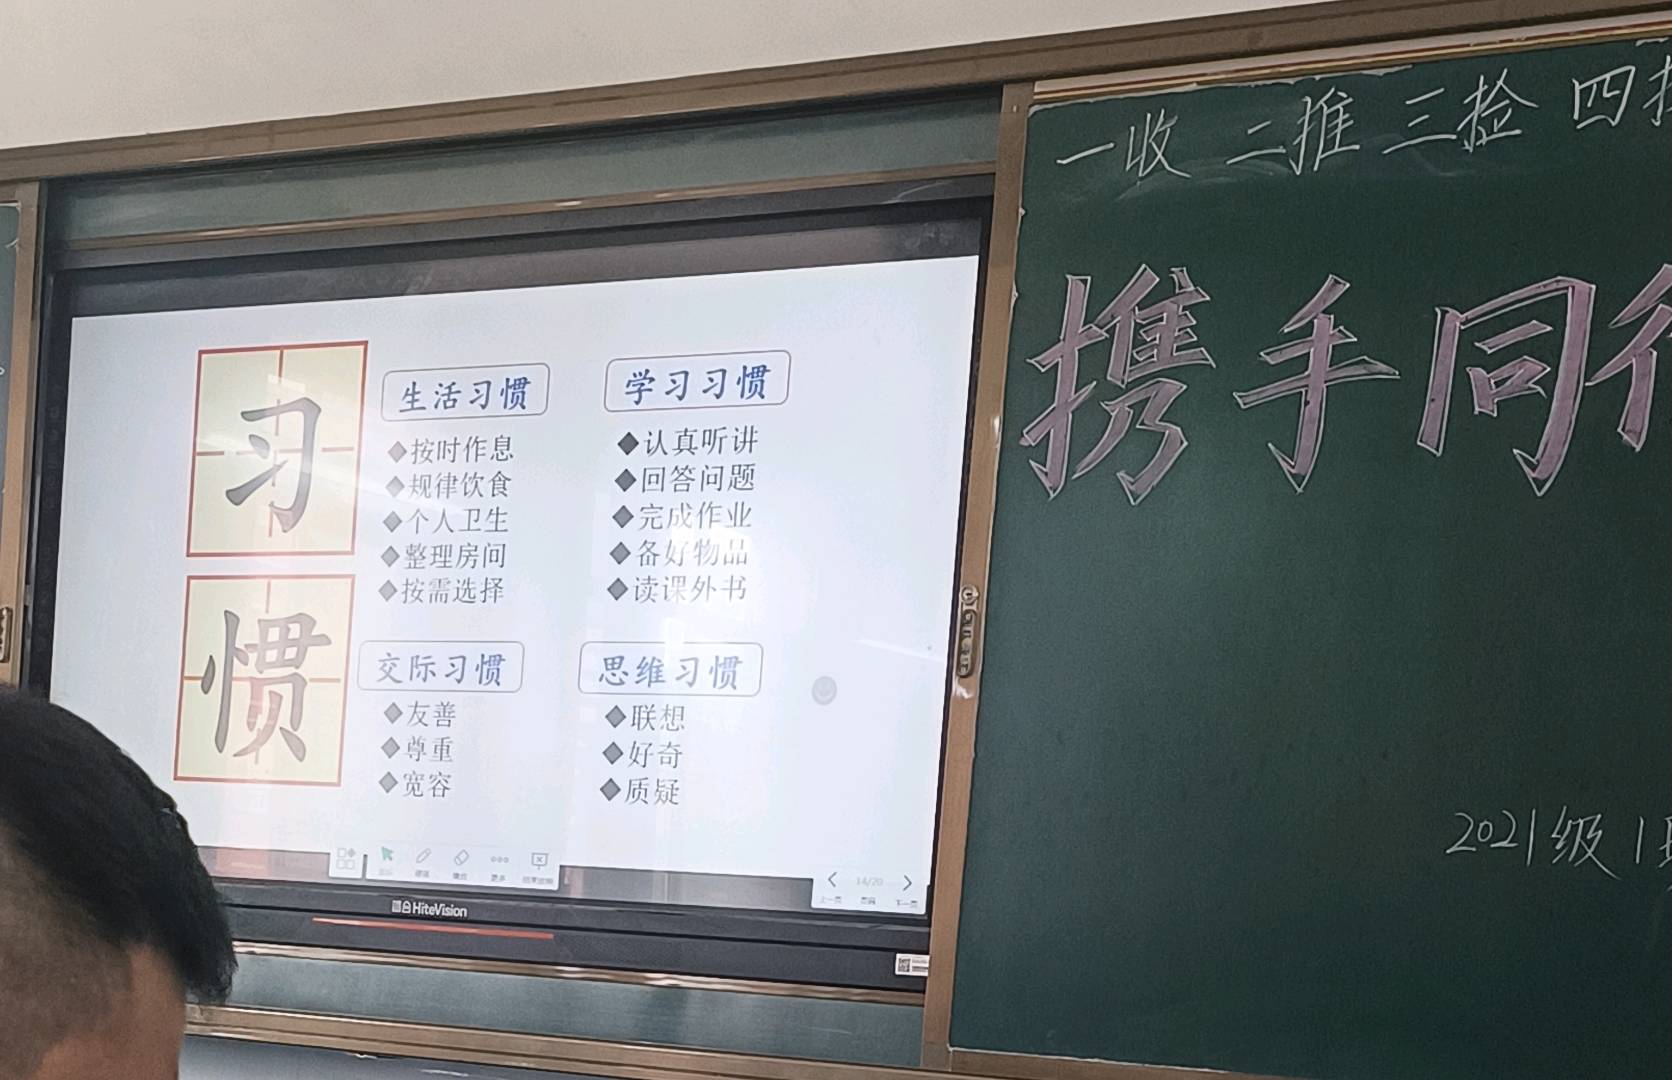 习
惯
生活习惯
◆按时作息
◆规律饮食
◆个人卫生
◆整理房间
◆按需选择
学习习惯
◆认真听讲
◆回答问题
◆完成作业
◆备好物品
◆读课外书
交际习惯
◆友善
◆尊重
◆宽容
思维习惯
◆联想
◆好奇
◆质疑
更多
14/20
上一页 下一页
HiteVision
一收 二推 三捡 四
携手同
2021级1